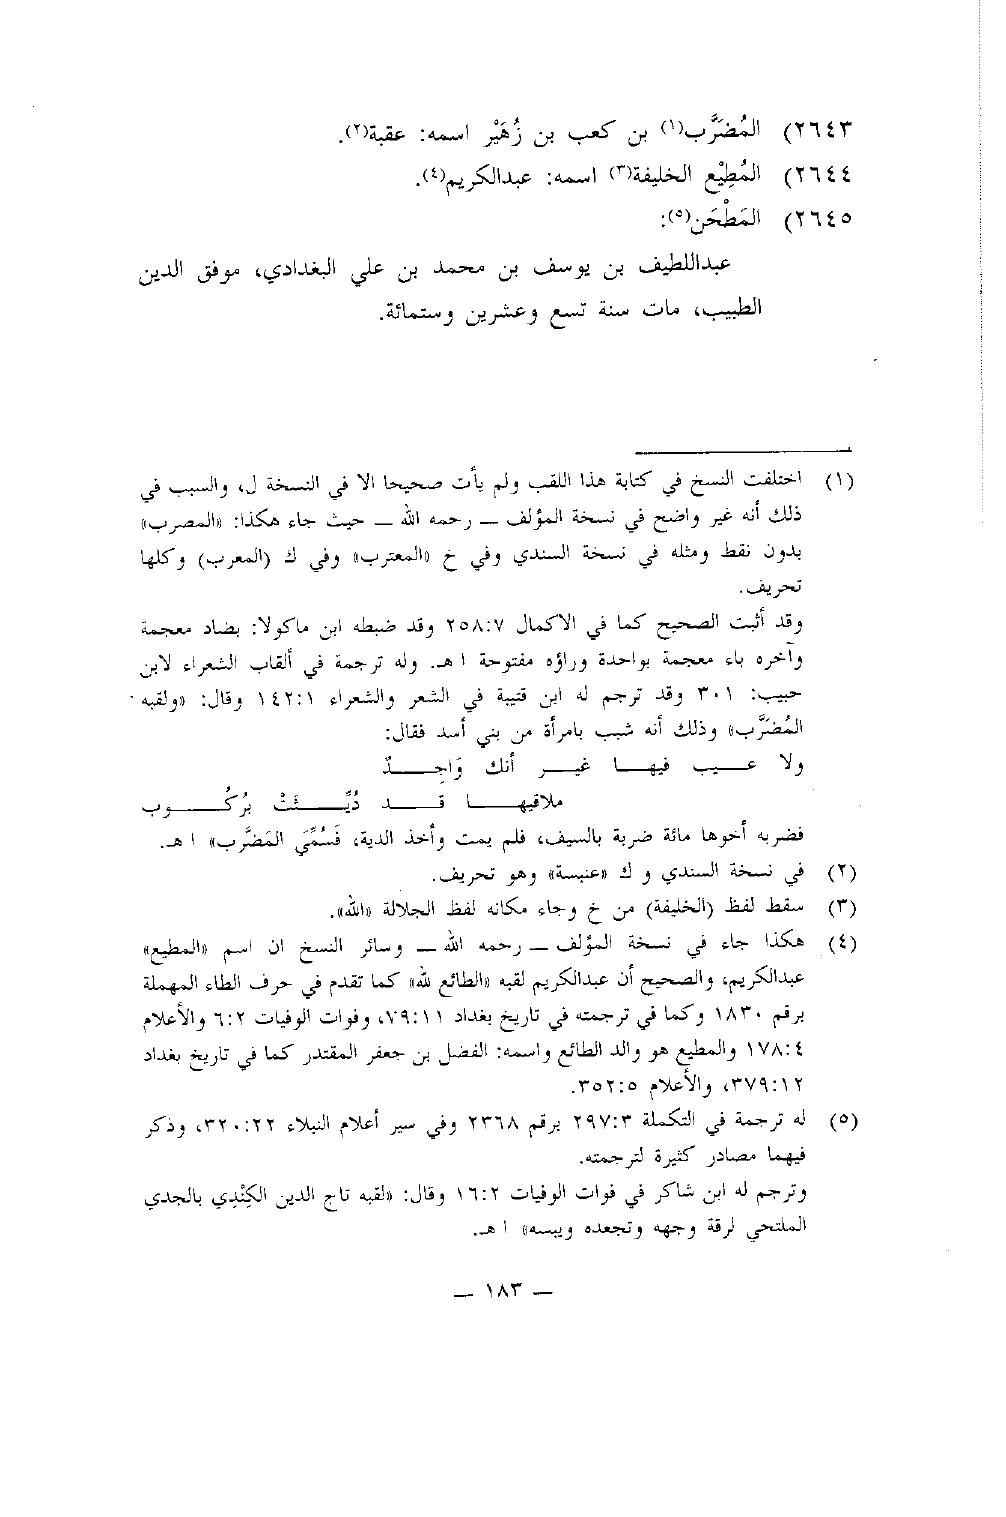 ٢٦٤٣) المُضَرَّب(١) بن كعب بن زُهَيْر اسمه: عقبة(٢).
٢٦٤٤) المُطِيْع الخليفة(٣) اسمه: عبدالكريم(٤).
٢٦٤٥) المَطْحَن(٥):
عبداللطيف بن يوسف بن محمد بن علي البغدادي، موفق الدين
الطبيب، مات سنة تسع وعشرين وستمائة.
(١) اختلفت النسخ في كتابة هذا اللقب ولم يأت صحيحا الا في النسخة ل، والسبب في
ذلك أنه غير واضح في نسخة المؤلف ــ رحمه الله ــ حيث جاء هكذا: «المصرب»
بدون نقط ومثله في نسخة السندي وفي خ «المعترب» وفي ك (المعرب) وكلها
تحريف.
وقد أثبت الصحيح كما في الاكمال ٢٥٨:٧ وقد ضبطه ابن ماكولا: بضاد معجمة
وآخره باء معجمة بواحدة وراؤه مفتوحة ا هـ. وله ترجمة في ألقاب الشعراء لابن
حبيب: ٣٠١ وقد ترجم له ابن قتيبة في الشعر والشعراء ١٤٢:١ وقال: «ولقبه
المُضَرَّب» وذلك أنه شبب بامرأة من بني أسد فقال:
ولا عـــيب فيهـــا غيـــر أنك وَاجِـــدٌ
ملاقيهـــا قـــد دُيِّـــثَتْ بِرُكُـــوب
فضربه أخوها مائة ضربة بالسيف، فلم يمت وأخذ الدية، فَسُمِّيَ المَضَّرب» ا هـ.
(٢) في نسخة السندي و ك «عنبسة» وهو تحريف.
(٣) سقط لفظ (الخليفة) من خ وجاء مكانه لفظ الجلالة «الله».
(٤) هكذا جاء في نسخة المؤلف ــ رحمه الله ــ وسائر النسخ ان اسم «المطيع»
عبدالكريم، والصحيح أن عبدالكريم لقبه «الطائع لله» كما تقدم في حرف الطاء المهملة
برقم ١٨٣٠ وكما في ترجمته في تاريخ بغداد ٧٩:١١، وفوات الوفيات ٦:٢ والأعلام
١٧٨:٤ والمطيع هو والد الطائع واسمه: الفضل بن جعفر المقتدر كما في تاريخ بغداد
٣٧٩:١٢، والأعلام ٣٥٢:٥.
(٥) له ترجمة في التكملة ٢٩٧:٣ برقم ٢٣٦٨ وفي سير أعلام النبلاء ٣٢٠:٢٢، وذكر
فيهما مصادر كثيرة لترجمته.
وترجم له ابن شاكر في فوات الوفيات ١٦:٢ وقال: «لقبه تاج الدين الكِنْدِي بالجدي
الملتحي لرقة وجهه وتجعده ويبسه» ا هـ.
— ١٨٣ —